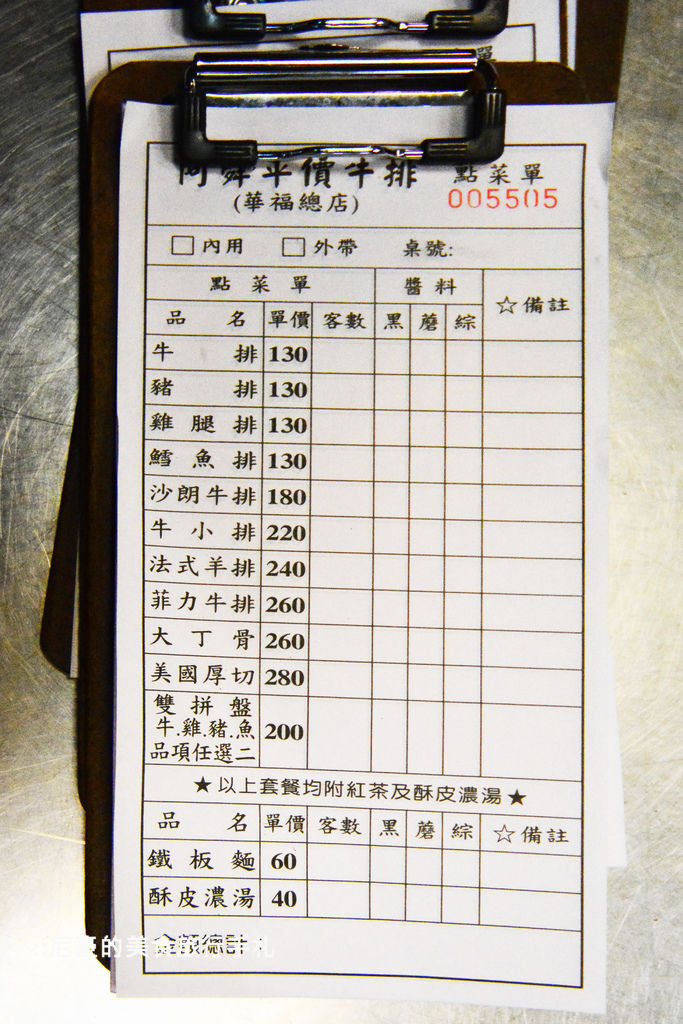 阿舜平價牛排 點菜單
(華福總店) 005505
□內用 □外帶 桌號:
點菜單 醬料 ☆備註
品名 單價 客數 黑 蘑 綜
牛排 130
豬排 130
雞腿排 130
鱈魚排 130
沙朗牛排 180
牛小排 220
法式羊排 240
菲力牛排 260
大丁骨 260
美國厚切 280
雙拼盤
牛.雞.豬.魚 200
品項任選二
★以上套餐均附紅茶及酥皮濃湯★
品名 單價 客數 黑 蘑 綜 ☆備註
鐵板麵 60
酥皮濃湯 40
金額總計